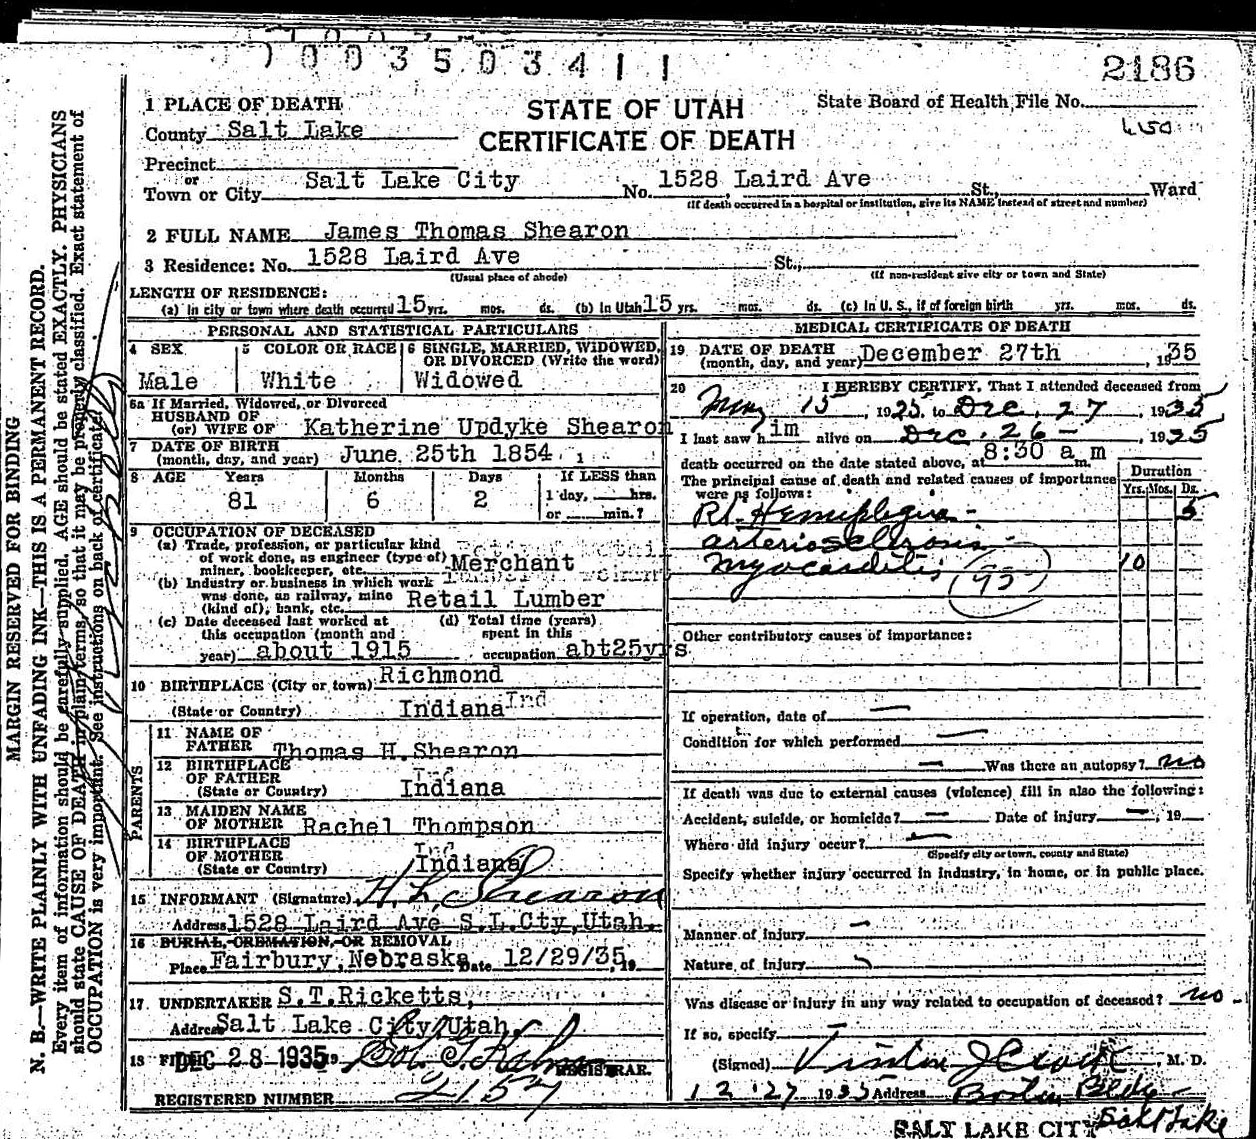 1003503411
2186
1 PLACE OF DEATH
STATE OF UTAH
CERTIFICATE OF DEATH
State Board of Health File No.
County Salt Lake
Precinct
or
Town or City Salt Lake City No. 1528 Laird Ave St., Ward
(If death occurred in a hospital or institution, give its NAME instead of street and number)
2 FULL NAME James Thomas Shearon
3 Residence: No. 1528 Laird Ave St.,
(Usual place of abode) (If non-resident give city or town and State)
LENGTH OF RESIDENCE:
(a) In city or town where death occurred 15 yrs. mos. ds. (b) In Utah 15 yrs. mos. ds. (c) In U. S., if of foreign birth yrs. mos. ds.
PERSONAL AND STATISTICAL PARTICULARS
4 SEX Male
5 COLOR OR RACE White
6 SINGLE, MARRIED, WIDOWED, OR DIVORCED (Write the word) Widowed
6a If Married, Widowed, or Divorced
HUSBAND OF
(or) WIFE OF Katherine Updyke Shearon
7 DATE OF BIRTH
(month, day, and year) June 25th 1854
8 AGE Years Months Days If LESS than
81 6 2 1 day, hrs.
or min.?
9 OCCUPATION OF DECEASED
(a) Trade, profession, or particular kind
of work done, as engineer (type of)
miner, bookkeeper, etc. Merchant
(b) Industry or business in which work
was done, as railway, mine
(kind of), bank, etc. Retail Lumber
(c) Date deceased last worked at
this occupation (month and
year) about 1915
(d) Total time (years)
spent in this
occupation abt25yrs
10 BIRTHPLACE (City or town) Richmond
(State or Country) Indiana Ind
PARENTS
11 NAME OF
FATHER Thomas H.Shearon
12 BIRTHPLACE
OF FATHER Ind
(State or Country) Indiana
13 MAIDEN NAME
OF MOTHER Rachel Thompson
14 BIRTHPLACE
OF MOTHER Ind
(State or Country) Indiana
15 INFORMANT (Signature) H. L. Shearon
Address 1528 Laird Ave S.L.Cty,Utah.
16 BURIAL, CREMATION, OR REMOVAL
Place Fairbury,Nebraska Date 12/29/35, 19
17 UNDERTAKER S.T.Ricketts,
Address Salt Lake City Utah.
18 FILED DEC 28 1935 19 REGISTRAR.
REGISTERED NUMBER 2157
MEDICAL CERTIFICATE OF DEATH
19 DATE OF DEATH
(month, day, and year) December 27th , 1935
20 I HEREBY CERTIFY, That I attended deceased from
May 15 , 1925, to Dec. 27 , 1935
I last saw him alive on Dec. 26 , 1935
death occurred on the date stated above, at 8:30 a m m.
The principal cause of death and related causes of importance
were as follows:
Duration
Yrs. Mos. Ds.
Rt. Hemiplegia 5
arteriosclerosis
Myocarditis 10
Other contributory causes of importance:
If operation, date of
Condition for which performed
Was there an autopsy? no
If death was due to external causes (violence) fill in also the following:
Accident, suicide, or homicide? Date of injury , 19
Where did injury occur?
(Specify city or town, county and State)
Specify whether injury occurred in industry, in home, or in public place.
Manner of injury
Nature of injury
Was disease or injury in any way related to occupation of deceased? no
If so, specify
(Signed) M. D.
12 27 1935 Address Boston Bldg
Salt Lake
SALT LAKE CITY
MARGIN RESERVED FOR BINDING
N. B.—WRITE PLAINLY WITH UNFADING INK—THIS IS A PERMANENT RECORD.
Every item of information should be carefully supplied. AGE should be stated EXACTLY. PHYSICIANS
should state CAUSE OF DEATH in plain terms, so that it may be properly classified. Exact statement of
OCCUPATION is very important. See instructions on back of certificate.